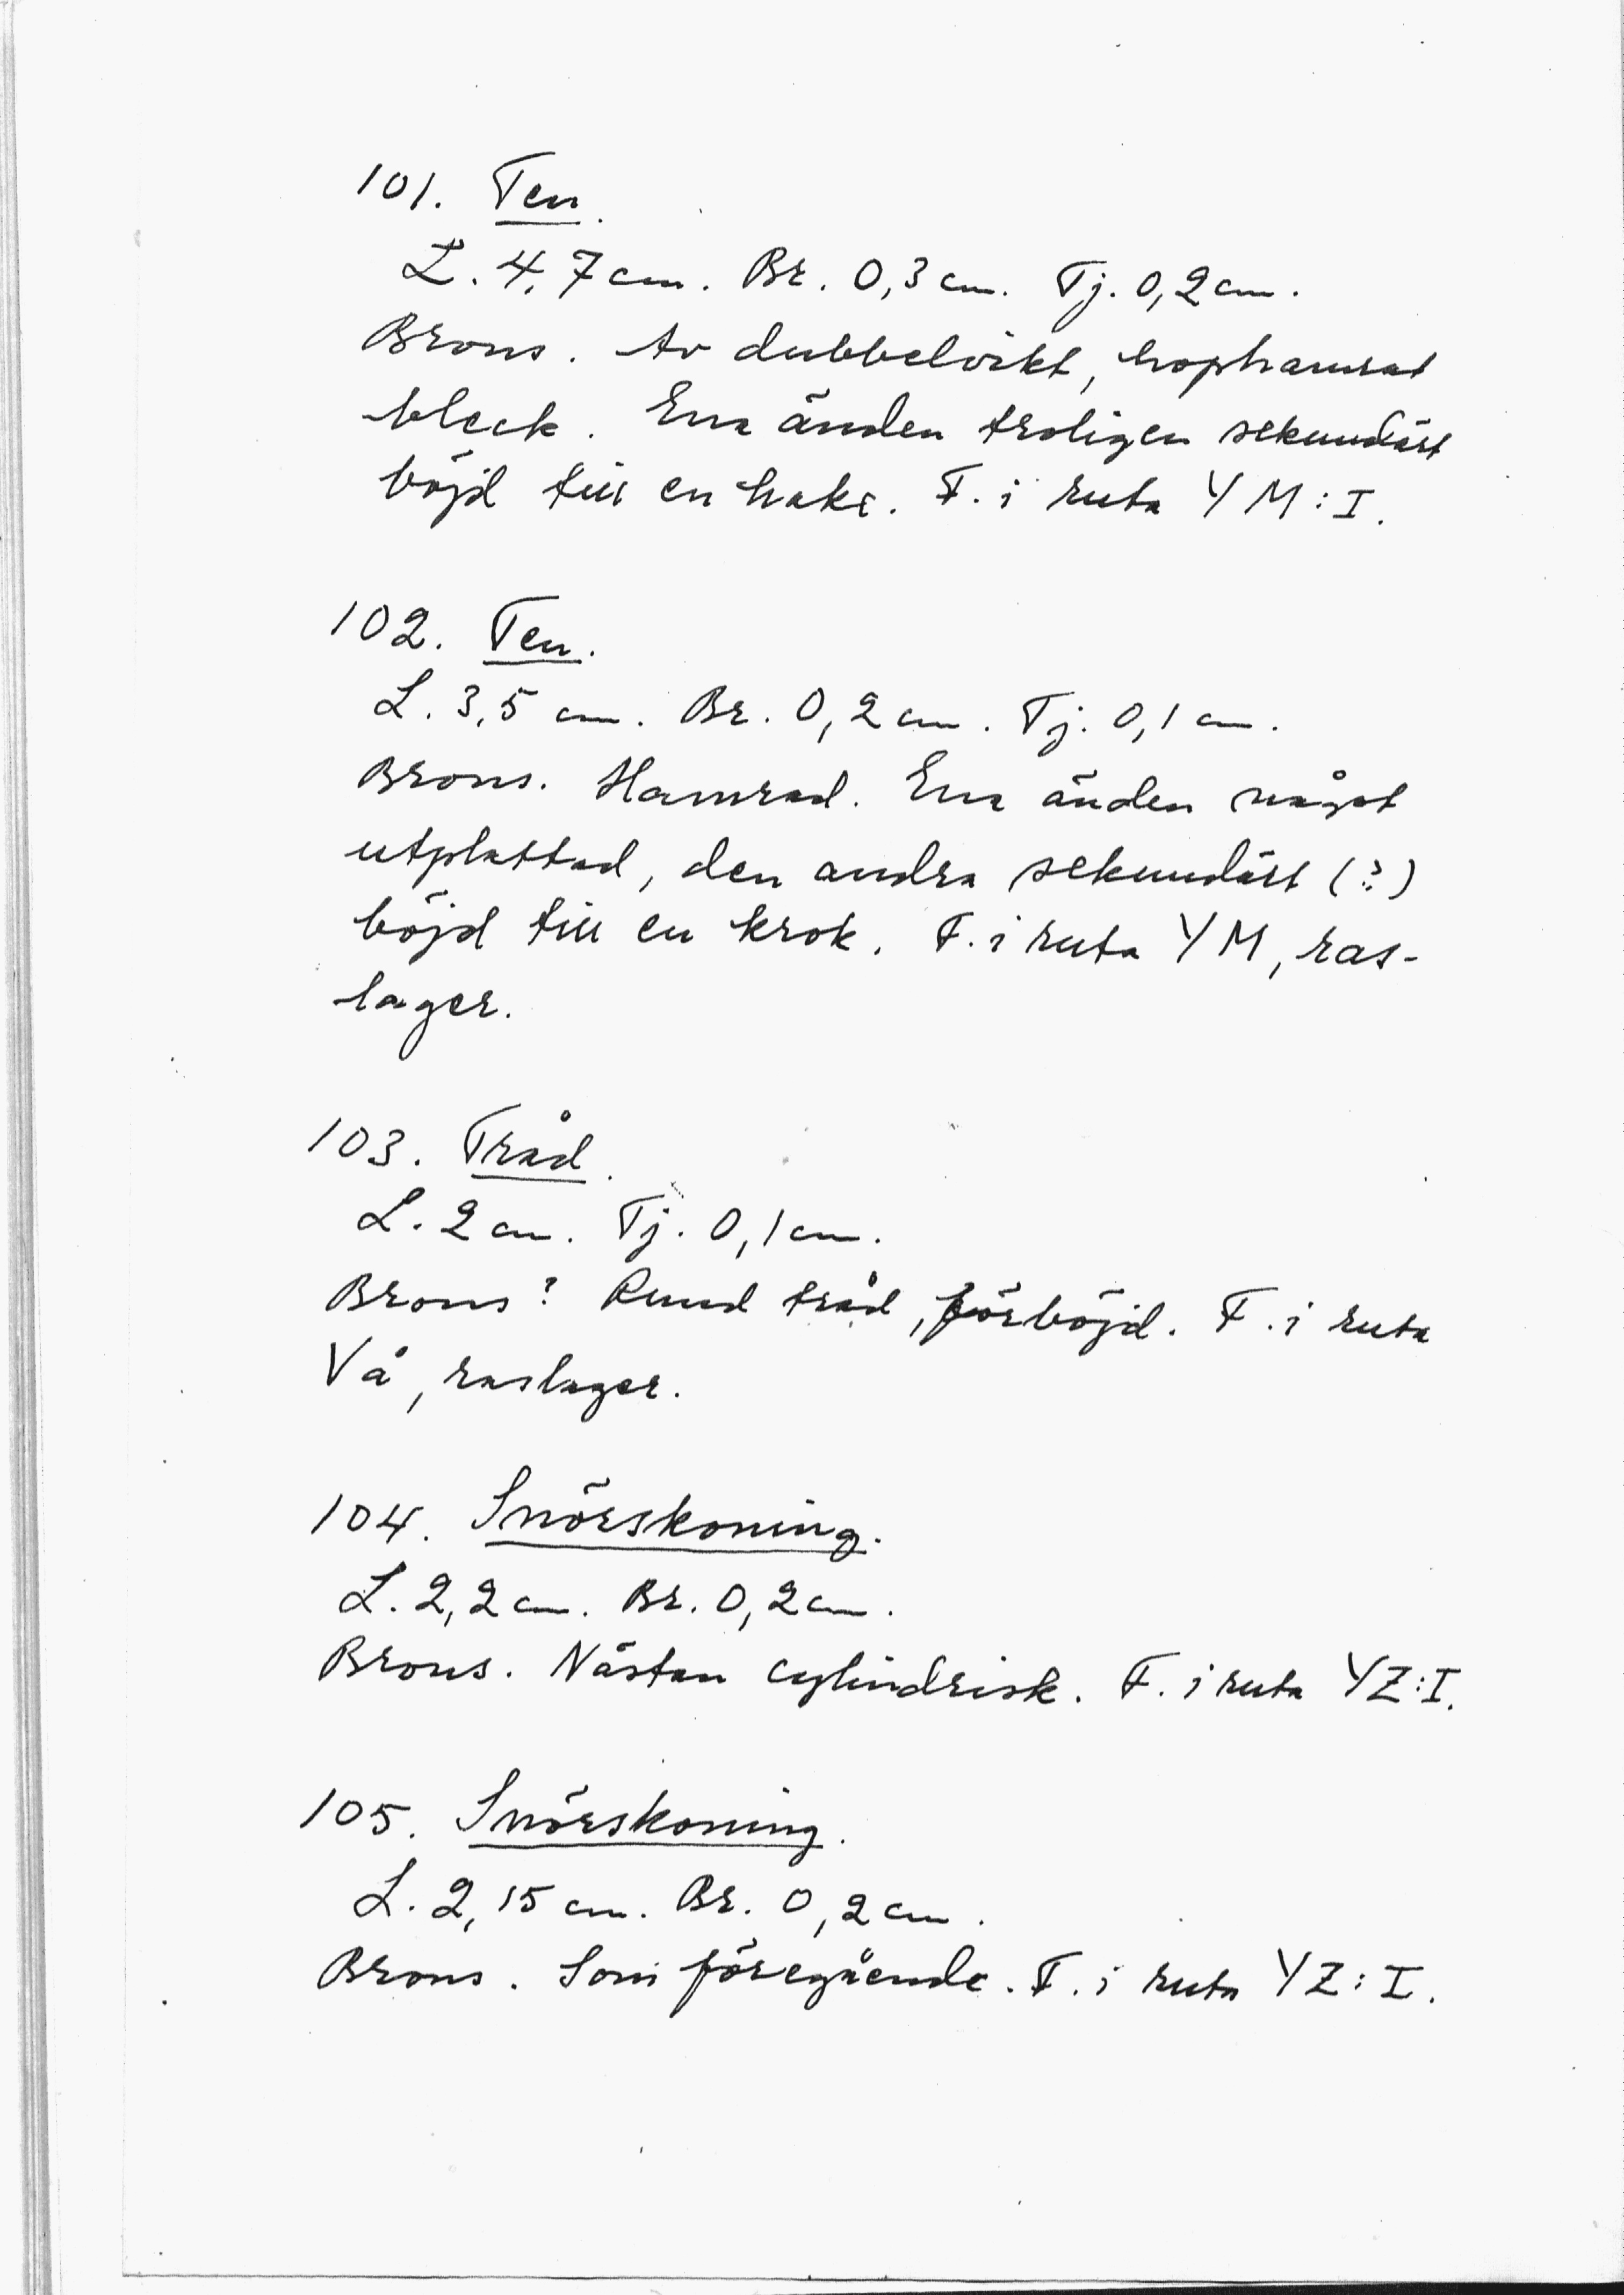 101. Ten.
L. 4,7 cm. Br. 0,3 cm. Tj. 0,2 cm.
Brons. Av dubbelvikt, hophamrat
bleck. Ena änden troligen sekundärt
böjd till en hake. F. i ruta YM:I.
102. Ten.
L. 3,5 cm. Br. 0,2 cm. Tj. 0,1 cm.
Brons. Hamrad. Ena änden något
utplattad, den andra sekundärt (?)
böjd till en krok. F. i ruta YM, ras-
lager.
103. Tråd.
L. 2 cm. Tj. 0,1 cm.
Brons? Rund tråd, förböjd. F. i ruta
Vå, raslager.
104. Snörskoning.
L. 2,2 cm. Br. 0,2 cm.
Brons. Nästan cylindrisk. F. i ruta YZ:I.
105. Snörskoning.
L. 2,15 cm. Br. 0,2 cm.
Brons. Som föregående. F. i ruta YZ:I.